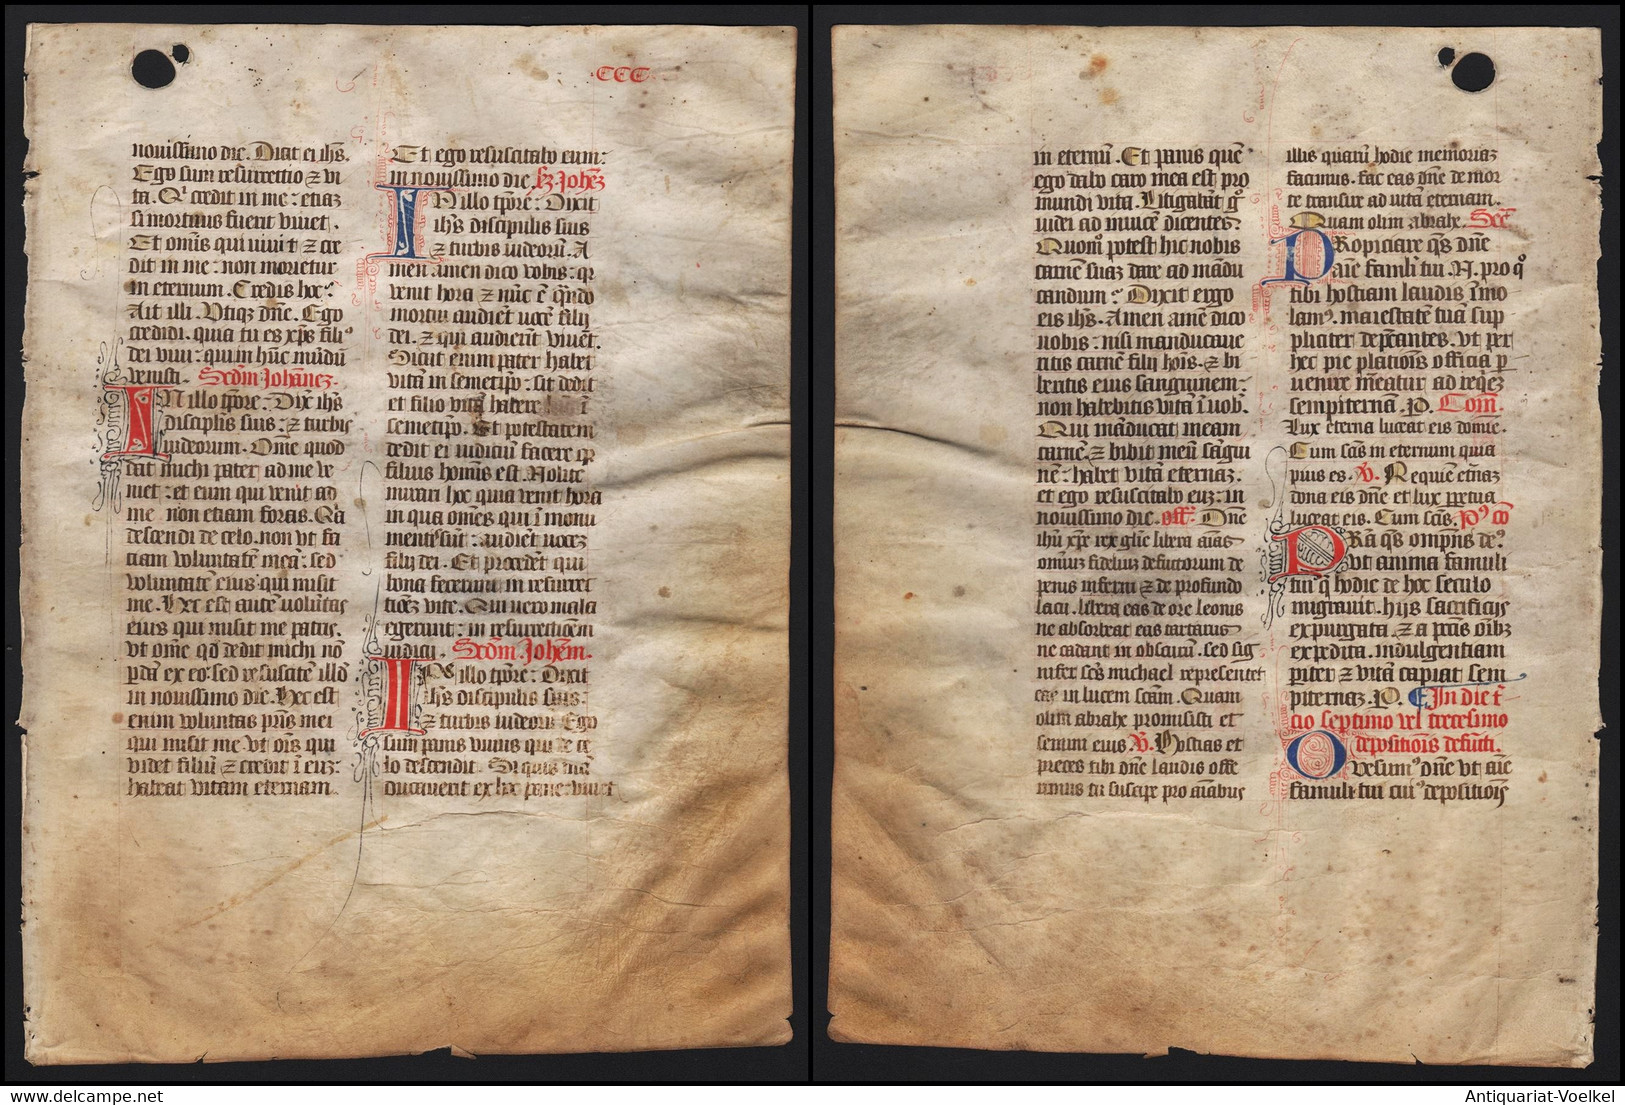 CCC
novissimo die. Dicit ei ihs.
Ego sum resurrectio ⁊ vi
ta. Qi credit in me: etiaz
si mortuus fuerit vivet.
Et omīs qui vivit ⁊ cre
dit in me: non morietur
in eternum. Credis hoc?
Ait illi. Vtiqz dn̄e. Ego
credidi. quia tu es xp̄s fili⁹
dei vivi: qui in hūc mūdū
venisti. Scdm̄ Johānez.
IN illo tp̄ore: Dix ihs
discipulis suis: ⁊ turbis
iudeorum. Om̄e quod
dat michi pater ad me ve
niet: et eum qui venit ad
me non eiiam foras. Qā
descendi de celo. non vt fa
ciam voluntatē meā: sed
voluntatē eius qui misit
me. Hec est autē voluntas
eius qui misit me patris.
vt om̄e qd̄ dedit michi nō
p̄dā ex eo: sed resuscitē illd̄
in novissimo die. Hec est
enim voluntas pr̄is mei
qui misit me vt om̄s qui
videt filiū ⁊ credit ī euz:
habeat vitam eternam
Et ego resuscitabo eum:
in novissimo die. Sz Johēz
IN illo tp̄ore: Dixit
ihs discipulis suis
⁊ turbis iudeorū. A
men amen dico vobis: qr
venit hora ⁊ nūc ē qn̄do
mortui audiēt vocē filij
dei. ⁊ qui audierint vivēt.
Sicut enim pater habet
vitā in semetip̄o: sic dedit
et filio vitā habere ī
semetip̄o. Et potestatem
dedit ei iudiciū facere qr
filius hominis est. Nolite
mirari hoc quia venit hora
in qua om̄es qui ī monu
mentis sūt: audiēt vocez
filij dei. Et procedēt qui
bona fecerunt in resurrec
tiōez vite. Qui vero mala
egerunt: in resurrectiōem
iudicij. Scdm̄ Johēm.
IN illo tp̄ore: Dixit
ihs discipulis suis:
⁊ turbis iudeorū Ego
sum panis vivus qui de ce
lo descendit. Si quis mā
ducaverit ex hoc pane: vivet
in eternū. Et panis quē
ego dabo caro mea est pro
mundi vita. Litigabāt g̊
iudei ad invicē dicentes.
Quom̊ potest hic nobis
carnē suaz dare ad mādu
candum? Dixit ergo
eis ihs. Amen amē dico
vobis: nisi manducave
ritis carnē filij hoīs. ⁊ bi
beritis eius sanguinem:
non habebitis vitā ī vob̄.
Qui māducat meam
carnē. ⁊ bibit meū sāgui
nē: habet vitā eternaz.
et ego resuscitabo euz: in
novissimo die. Off. Dn̄e
ihū xp̄e rex glīe libera aīas
omniuz fideliuz defunctorum de
penis inferni ⁊ de profundo
lacu. libera eas de ore leonis
ne absorbeat eas tartarus
ne cadant in obscurū. sed sig
nifer scs̄ michael representet
eas in lucem scām. Quam
olim abrahe promisisti et
semini eius V̄. Hostias et
preces tibi dn̄e laudis offe
rimus tu suscipe pro aīabus
illis quarū hodie memoriaz
facimus. fac eas dn̄e de mor
te transire ad vitā eternam.
Quam olim abrahe. Secr̄
PRopiciare qs̄ dn̄e
aīe famli tui N. pro q̊
tibi hostiam laudis īmo
lam⁹. maiestatē tuā sup
pliciter dep̄cantes. vt per
hec pie placatiōis officia p
venire mereatur ad reqez
sempiternā. P. Com̄.
Lux eterna luceat eis domine.
Cum scīs in eternum quia
pius es. V̄. Requiē et̄naz
dona eis dn̄e et lux perpetua
luceat eis. Cum scīs. P⁹ cō
PRa qs̄ omp̄ns de⁹
vt anima famuli
tui q̄ hodie de hoc seculo
migravit. hijs sacrificijs
expurgata. ⁊ a pctīs oībz
expedita. indulgentiam
piter ⁊ vitā capiat sem
piternaz. P. In die t̄
cio septimo vel trecesimo
depositiōis defūcti.
QVesum⁹ dn̄e vt aīe
famuli tui cui⁹ depositiōis
Antiquariat-Voelkel